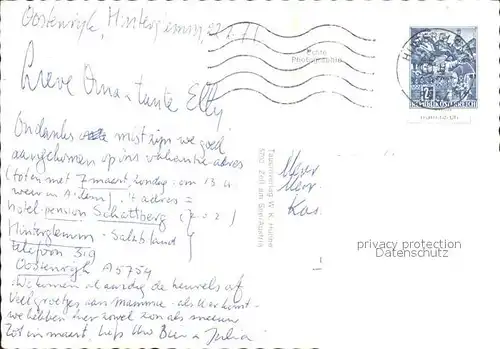 Oostenryk, Hinterglemm, 22/2 71
Lieve Oma + tante Elly
Ondanks mist zijn we goed
aangekomen op ons vakantie-adres
(tot en met 7 maart, zondag, om 13 u.
weer in A'dam) 't adres =
hotel-pension Schattberg (
Hinterglemm - Salzbland
telefoon 319
Oostenryk A5754
We kunnen al aardig de heuvels af
Veel groetjes aan mamma - als U er komt -
we hebben hier zowel zon als sneeuw
Tot in maart, liefs Uw Bien + Julia
Echte
Photographie
Tauernverlag W. K. Hühne
5702 Zell am See/Austria
HINTERGLEMM
REPUBLIK ÖSTERREICH
Mevr
Mevr.
Kas
privacy protection
Datenschutz